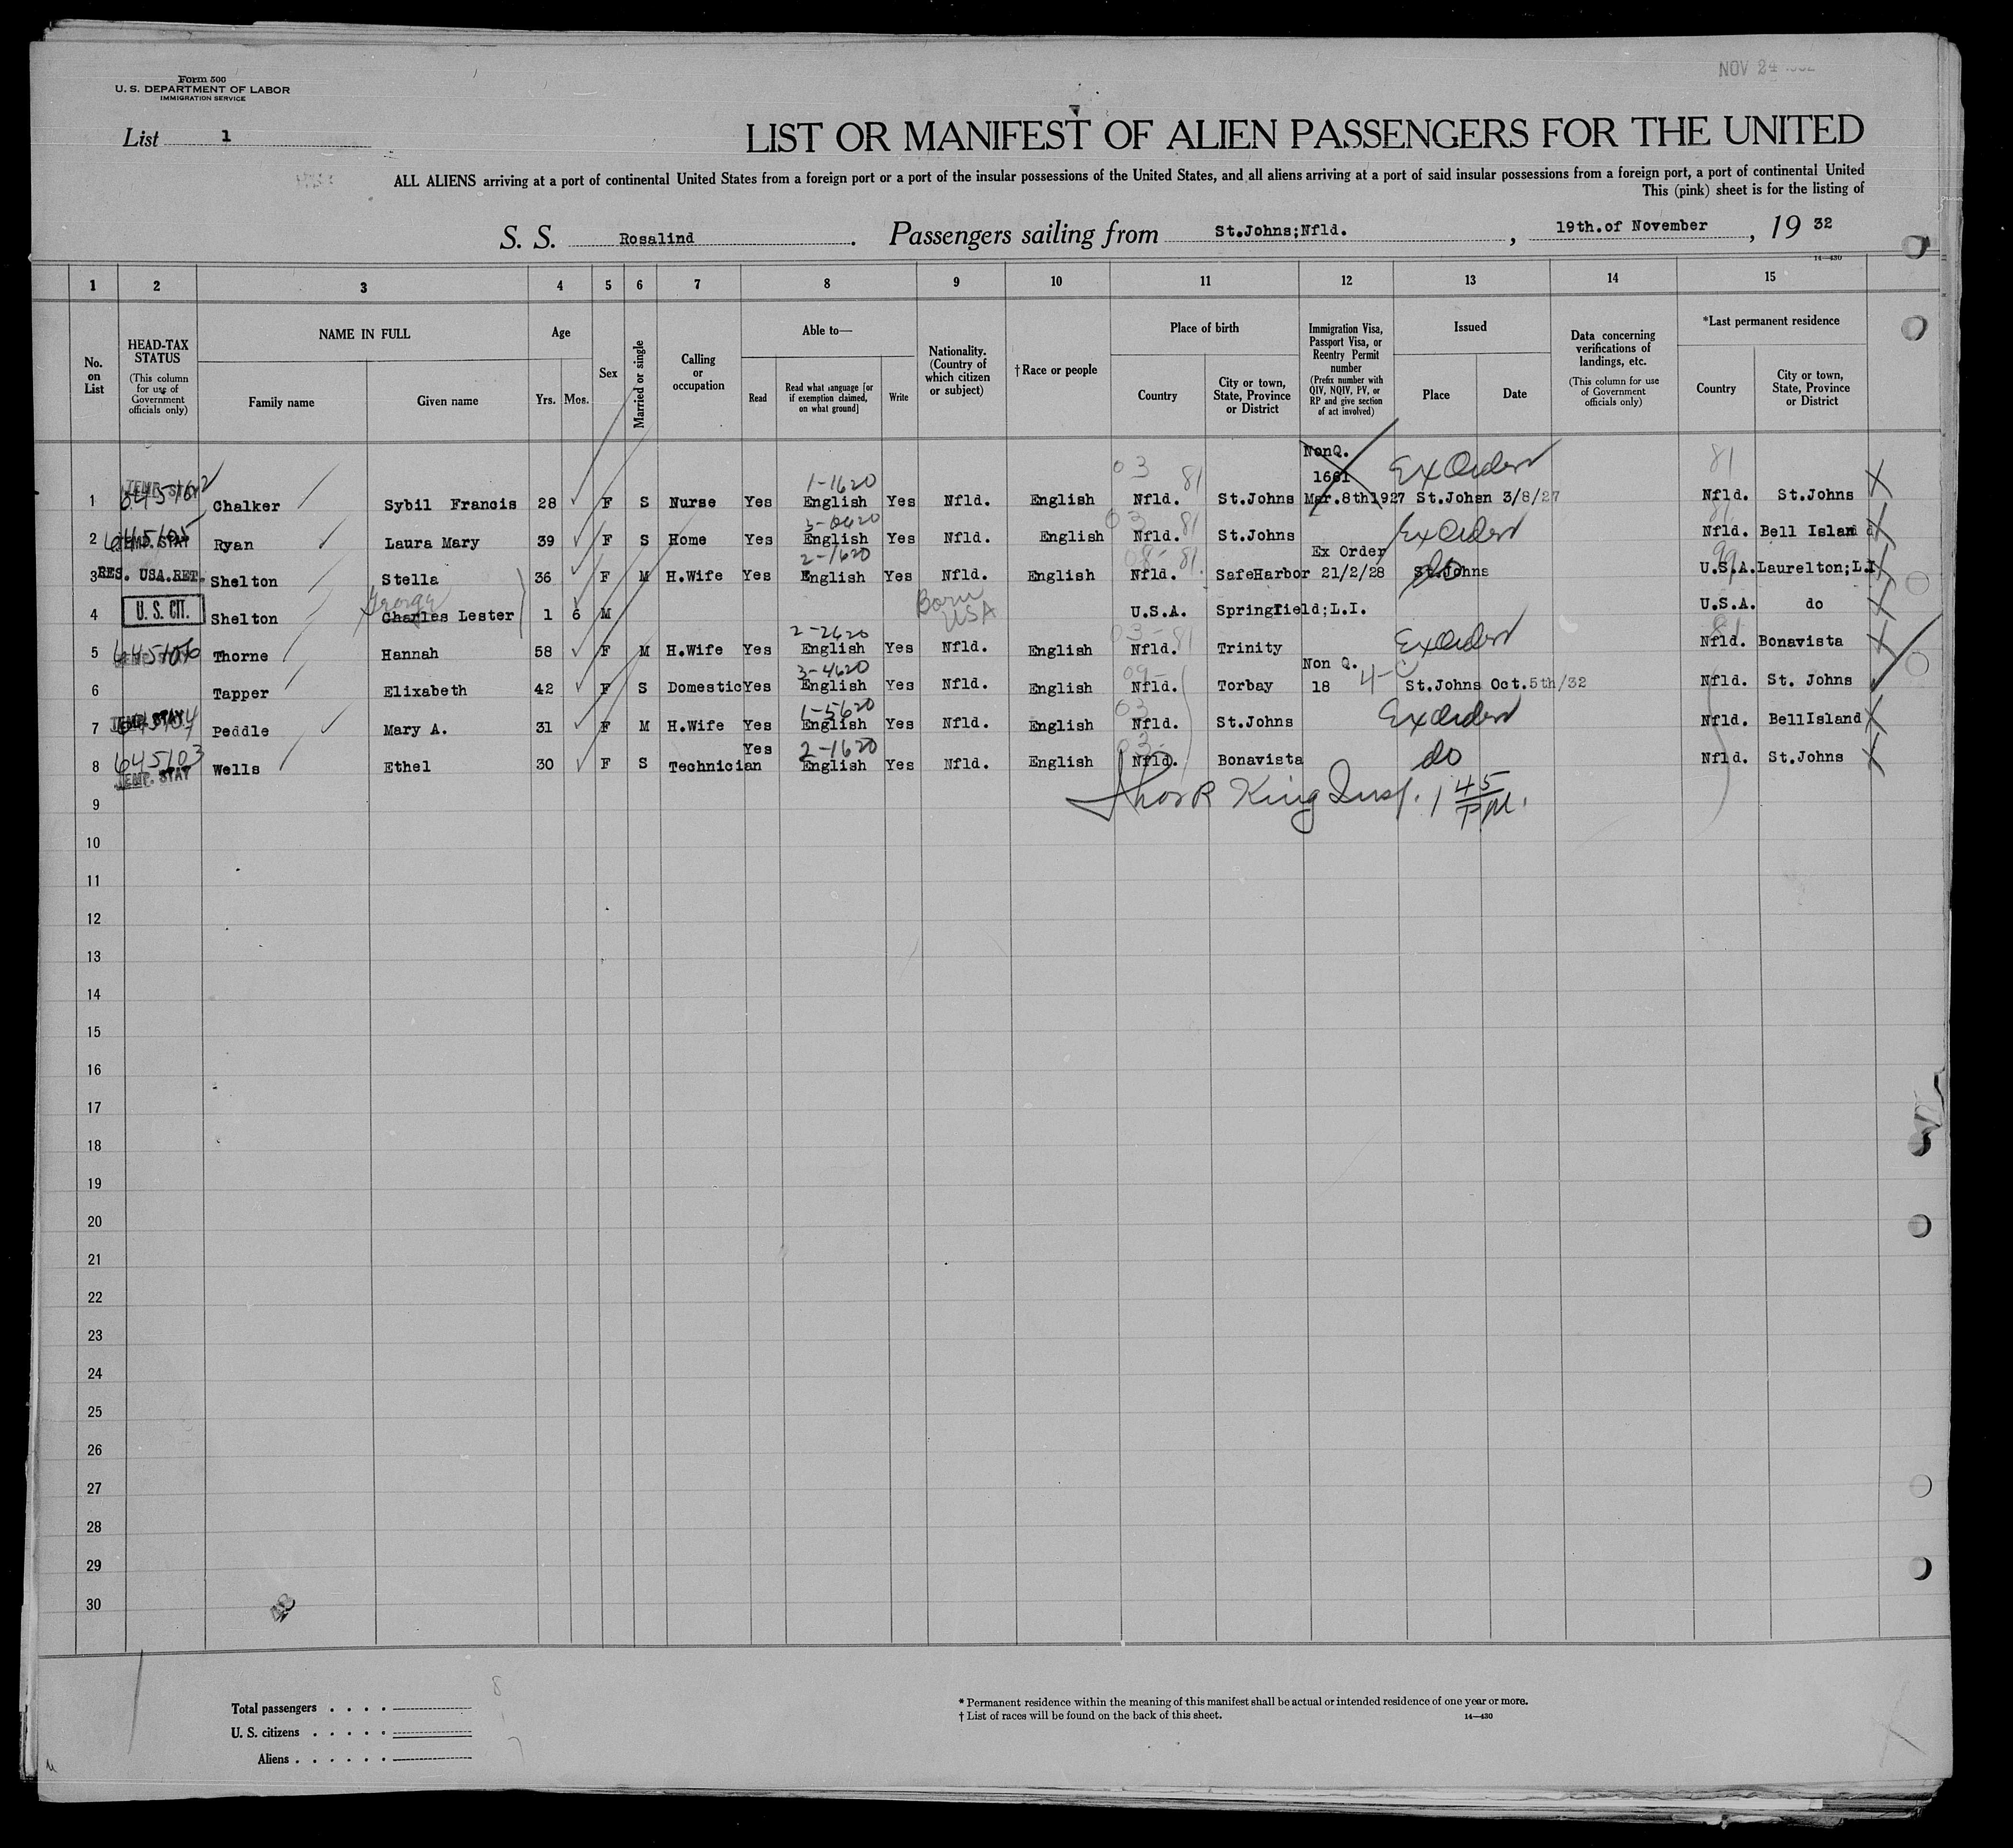 NOV 24 1932
Form 500
U. S. DEPARTMENT OF LABOR
IMMIGRATION SERVICE
List 1
LIST OR MANIFEST OF ALIEN PASSENGERS FOR THE UNITED
ALL ALIENS arriving at a port of continental United States from a foreign port or a port of the insular possessions of the United States, and all aliens arriving at a port of said insular possessions from a foreign port, a port of continental United
This (pink) sheet is for the listing of
S. S. Rosalind. Passengers sailing from St.Johns;Nfld., 19th.of November, 19 32
14—430
1 2 3 4 5 6 7 8 9 10 11 12 13 14 15
No. on List
HEAD-TAX STATUS (This column for use of Government officials only)
NAME IN FULL
Family name
Given name
Age
Yrs. Mos.
Sex
Married or single
Calling or occupation
Able to—
Read
Read what language [or if exemption claimed, on what ground]
Write
Nationality. (Country of which citizen or subject)
†Race or people
Place of birth
Country
City or town, State, Province or District
Immigration Visa, Passport Visa, or Reentry Permit number (Prefix number with QIV, NQIV, PV, or RP and give section of act involved)
Issued
Place
Date
Data concerning verifications of landings, etc. (This column for use of Government officials only)
*Last permanent residence
Country
City or town, State, Province or District
1-1620 03 81 NonQ. 1661 Ex Order 81
1 TEMP. STAY Chalker Sybil Francis 28 F S Nurse Yes English Yes Nfld. English Nfld. St.Johns Mar.8th1927 St.Johsn 3/8/27 Nfld. St.Johns
3-0620 03 81 Ex Order 81
2 645105 TEMP. STAY Ryan Laura Mary 39 F S Home Yes English Yes Nfld. English Nfld. St.Johns Nfld. Bell Island
2-1620 81 Ex Order do 99
3 RES. USA.RET. Shelton Stella 36 F M H.Wife Yes English Yes Nfld. English Nfld. SafeHarbor 21/2/28 St.Johns U.S.A. Laurelton;L.I
George Born USA
4 U. S. CIT. Shelton Charles Lester 1 6 M U.S.A. Springfield;L.I. U.S.A. do
2-2620 03- 81 Ex Order 81
5 645106 Thorne Hannah 58 F M H.Wife Yes English Yes Nfld. English Nfld. Trinity Nfld. Bonavista
3-4620 09- Non Q. 4-C
6 Tapper Elixabeth 42 F S Domestic Yes English Yes Nfld. English Nfld. Torbay 18 St.Johns Oct.5th/32 Nfld. St. Johns
1-5620 03 Ex Order
7 645104 TEMP. STAY Peddle Mary A. 31 F M H.Wife Yes English Yes Nfld. English Nfld. St.Johns Nfld. BellIsland
2-1620 03- do
8 645103 TEMP. STAY Wells Ethel 30 F S Technician Yes English Yes Nfld. English Nfld. Bonavista Nfld. St.Johns
Thos R King Insp. 1 45 PM.
9
10
11
12
13
14
15
16
17
18
19
20
21
22
23
24
25
26
27
28
29
30
Total passengers . . . . 8
U. S. citizens . . . . .
Aliens . . . . . .
* Permanent residence within the meaning of this manifest shall be actual or intended residence of one year or more.
† List of races will be found on the back of this sheet.
14—430